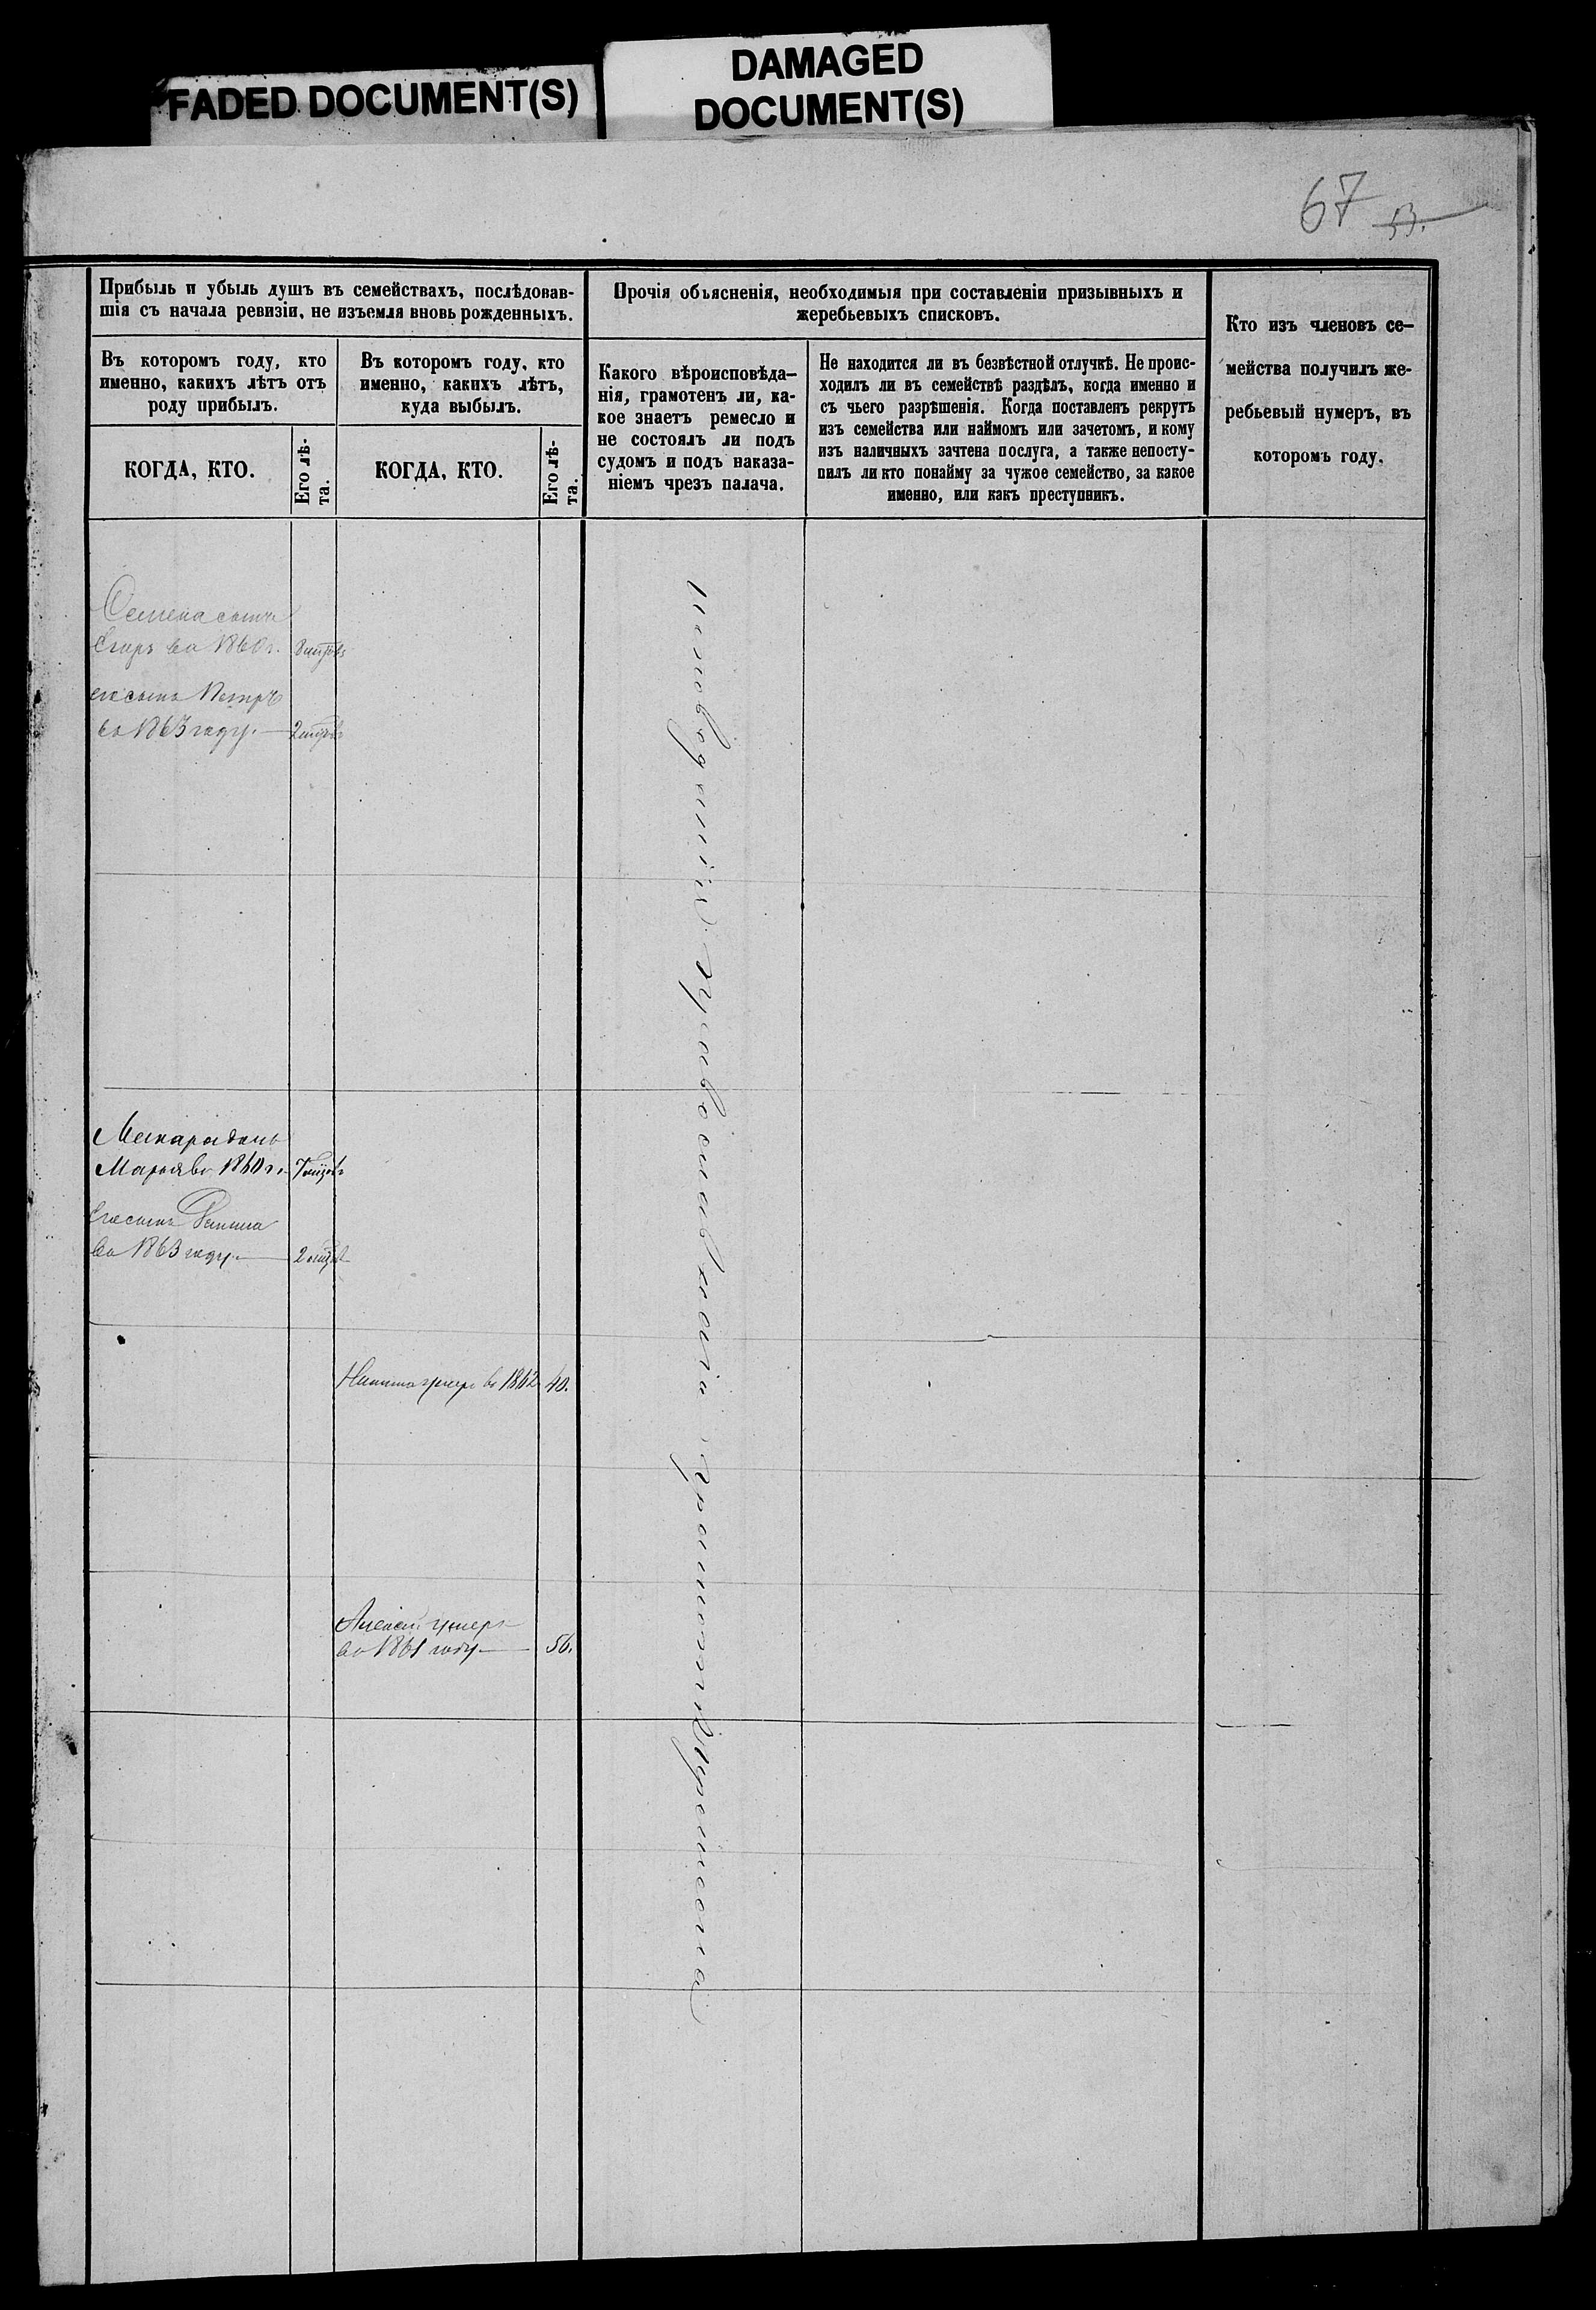 FADED DOCUMENT(S)
DAMAGED
DOCUMENT(S)
67 53.
Прибыль и убыль душъ въ семействахъ, послѣдовав-
шія съ начала ревизіи, не изъемля вновь рожденныхъ.
Въ которомъ году, кто
именно, какихъ лѣтъ отъ
роду прибылъ.
КОГДА, КТО.
Его лѣ-
та.
Въ которомъ году, кто
именно, какихъ лѣтъ,
куда выбылъ.
КОГДА, КТО.
Его лѣ-
та.
Прочія объясненія, необходимыя при составленіи призывныхъ и
жеребьевыхъ списковъ.
Какого вѣроисповѣда-
нія, грамотенъ ли, ка-
кое знаетъ ремесло и
не состоялъ ли подъ
судомъ и подъ наказа-
ніемъ чрезъ палача.
Не находится ли въ безвѣстной отлучкѣ. Не проис-
ходилъ ли въ семействѣ раздѣлъ, когда именно и
съ чьего разрѣшенія. Когда поставленъ рекрутъ
изъ семейства или наймомъ или зачетомъ, и кому
изъ наличныхъ зачтена послуга, а также непосту-
пилъ ли кто понайму за чужое семейство, за какое
именно, или какъ преступникъ.
Кто изъ членовъ се-
мейства получилъ же-
ребьевый нумеръ, въ
которомъ году.
Семена сынъ
Егоръ въ 1860 г.
его сынъ Петръ
въ 1863 году. 2
Макара дочь
Марья въ 1860 г. 7
Его сынъ
въ 1863 году 2
Никита умеръ въ 1862 40.
Алексей умеръ
въ 1861 году 56.
исповеданія православнаго